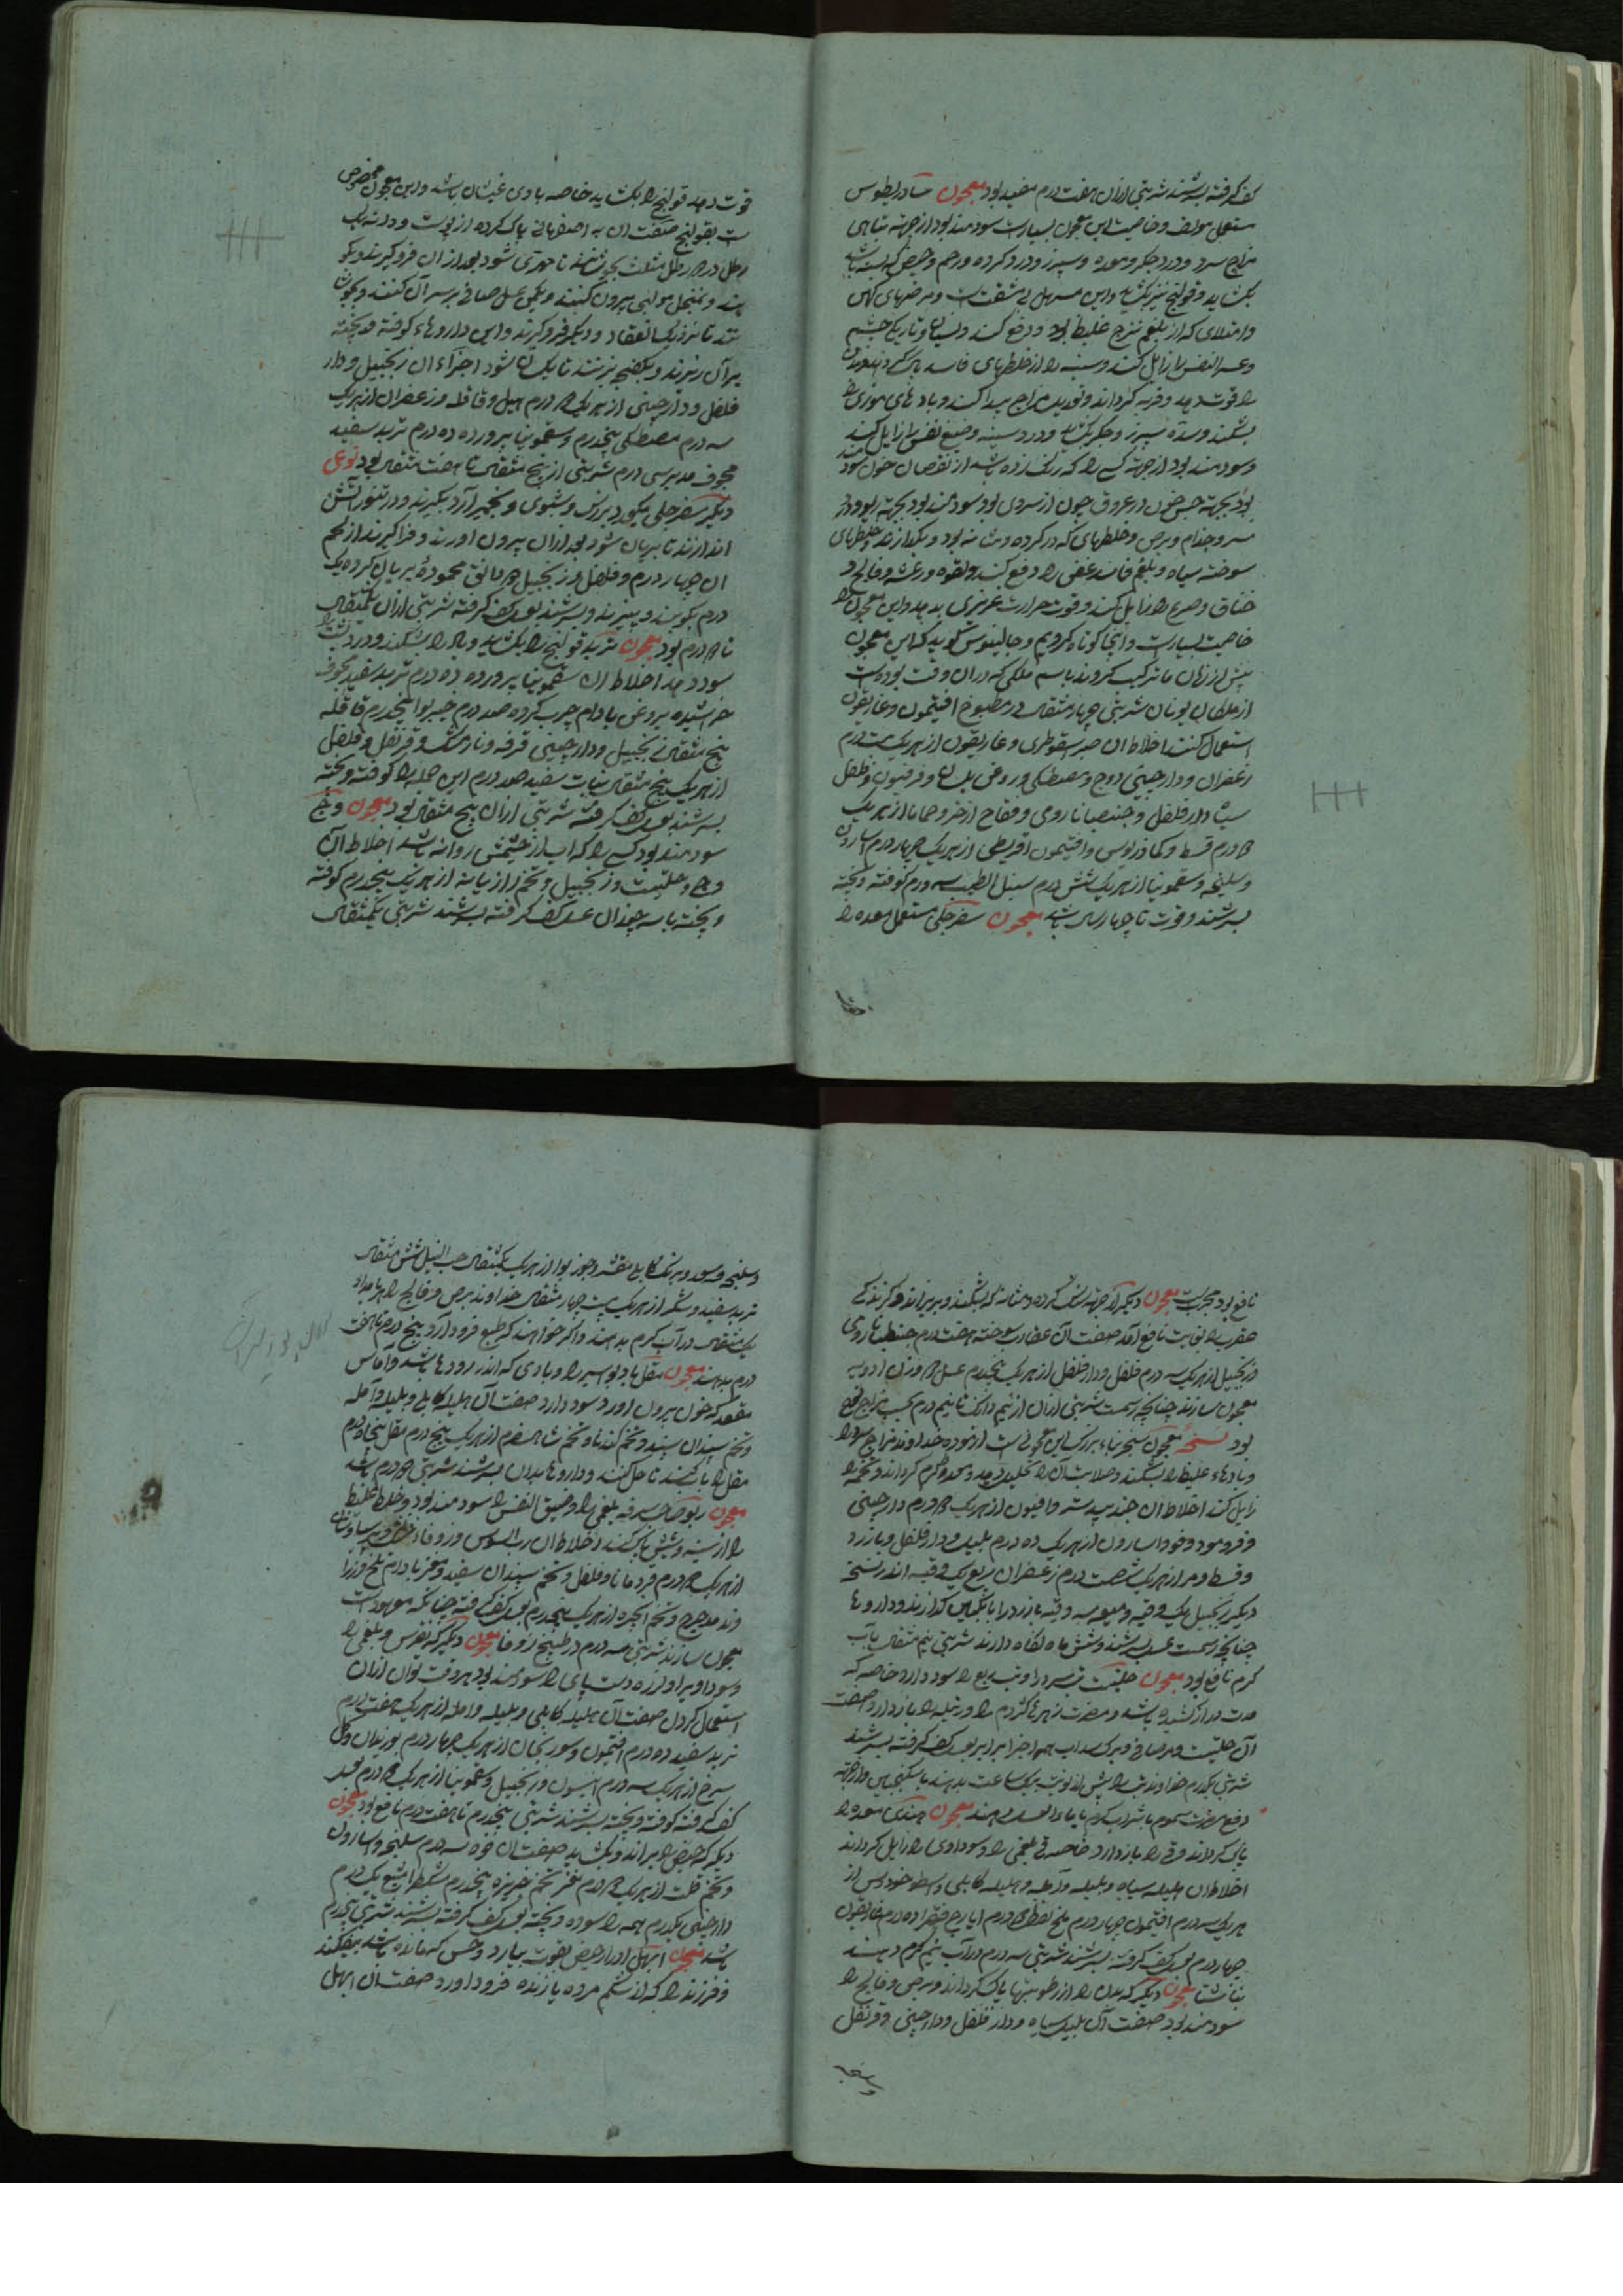 کف گرفته بسرشند شربتی ازان هفت درم مفید بود معجون ثیادریطوس
مستعمل مولف وخاصیت این معجون بسیارست سودمند بود از جهة تباهی
مزاج سرد ودرد جکر ومعده وسپرز ودرد کرده ورحم وحیض که بسته باشد
بکشاید وقولنج نیز بکشاید واین مسهل بی مشقت است ومرضهای کهن
وامتلای که از بلغم لزج غلیظ بود دفع کند ونسیان وتاریکی چشم
وعسر النفس را زایل کند وسینه را از خلطهای فاسد پاک کرداند
را قوت دهد وفربه کرداند وتعدیل مزاج پیدا کند وبادهای موذی را
بشکند وسده سپرز وجکر بکشاید ودرد سینه وضیق نفس را زایل کند
وسودمند بود از جهة کسی را که رنک زرد باشد از نقصان خون
بود بجهة حبس خون در عروق چون از سردی بود وسودمند بود بجهة ربو ودوار
سر وجذام وبرص وخلطهای که در کرده ومثانه بود وبکدازند وخلطهای
سوخته سیاه وبلغم فاسد عفن را دفع کند ولقوه ورعشه وفالج و
خناق وصرع را زایل کند وقوت حرارت غریزی بدهد واین معجون را
خاصیت بسیارست واینجا کوتاه کردیم وجالینوس کوید که این معجون
پیش از زمان ما ترکیب کردند باسم ملکی که دران وقت بوده است
از ملکان یونان شربتی چهار مثقال در مطبوخ افتیمون وغاریقون
استعمال کنند اخلاط آن صبر سقوطری وغاریقون از هریک بیست درم
زعفران ودارچینی ووج ومصطکی وروغن بلسان وفرفیون وفلفل
سیاه ودارفلفل وجنطیانا رومی وفقاح اذخر وحماما از هریک
درم قسط وکمادریوس وافتیمون اقریطی از هریک چهار درم اسارون
وسلیخه وسقمونیا از هریک شش درم سنبل الطیب سه درم کوفته وبیخته
بسرشند وقوت تا چهار سال باشد معجون سفرجلی مستعمل معده را
قوت دهد قولنج را بکشاید خاصه با وی غثیان باشد واین معجون مخصوص
است بقولنج صفت آن به اصفهانی پاک کرده از پوست ودانه یک
رطل در رطل مثلث بجوشانند تا مهرّی شود بعد ازان فرو کیرند ونیکو
بزنند وبمنخل مولنجی بیرون کنند ویکمن عسل صافی بر سر آن کنند وبجوشا
نند تا نزدیک انعقاد ودیک فرو کیرند واین داروهاء کوفته وبیخته
بر آن ریزند وبکفچه بزنند تا یکسان شود اجزاء آن زنجبیل ودار
فلفل ودارچینی از هریک درم هیل وقاقله وزعفران از هریک
سه درم مصطکی پنجدرم وسقمونیا پرورده ده درم تربد سفید
مجوف مدبر سی درم شربتی از پنج مثقال تا هفت مثقال بود نوعی
دیکر سفرجلی بکیرد بزرک وبشوی وبخمیر آرد بکیرند ودر تنور آتش
اندازند تا بریان شود بعد ازان بیرون اورند وفرا کیرند از لحم
ان چهار درم وفلفل وزنجبیل دانق محموده بریان کرده یک
درم بکوبند وبپیزند وبسرشند بعسل کف کرفته شربتی ازان یکمثقال
تا درم بود معجون تربد قولنج را بکشاید وباد را بشکند ودرد پشت را
سود دهد اخلاط ان سقمونیا پرورده ده درم تربد سفید مجوف
خراشیده بروغن بادام چرب کرده صد درم خیربوا پنجدرم قاقله
پنج مثقال زنجبیل ودارچینی قرفه ونارمشک وقرنفل وفلفل
از هریک پنج مثقال نبات سفید صد درم این جمله را کوفته وبیخته
بسرشند بعسل کف کرفته شربتی ازان پنج مثقال بود معجون وج
سودمند بود کسی را که آب از چشمش روانه باشد اخلاط آن
وج وحلتیت وزنجبیل وتخم رازیانه از هریک پنجدرم کوفته
وبیخته با سه چندان عسل کف کرفته بسرشند شربتی یکمثقال
نافع بود مجربست معجون دیکر از جهة سنک کرده ومثانه که بشکند وبریزاند وکزندکی
عقرب را بغایت نافع آمد صفت آن عقارب سوخته هفت درم جنطیانا رومی
وزنجبیل از هریک سه درم فلفل ودارفلفل از هریک پنجدرم عسل وزن ادویه
معجون سازند چنانچه رسمست شربتی ازان از نیم دانک تا نیم درم بحسب مزاج نافع
بود نسخه معجون سنجرنیاء بزرک این معجونی است ازموده خداوند مزاج سرد را
وبادهاء غلیظ را بشکند وصلابت آنرا تحلیل دهد ومعده را کرم کرداند وتخمه را
زایل کند اخلاط ان جندبیدستر وافیون از هریک درم دارچینی
وفو ومو ودوقو واسارون از هریک ده درم بلیله ودارفلفل وبارزد
وقسط ومر از هریک شصت درم زعفران ربع یک وقیه اندر نسخه
دیکر زنجبیل یک وقیه ومیعه سه وقیه بارزد را بانکبین کدازند وداروها
چنانچه رسمست بعسل بسرشند وشش ماه نکاه دارند شربتی نیم مثقال بآب
کرم نافع بود معجون حلتیت تب سرد را وتب ربع را سود دارد خاصه که
مدت دراز کشیده باشد ومضرت زهر کژدم را ورتیله را باز دارد صفت
آن حلتیت ومر صافی وبرک سداب همه اجزا برابر بعسل کف کرفته بسرشند
شربتی یکدرم خداوند تب را پیش از نوبت بیک ساعت بدهند با سکنجبین واز جهة
دفع مضرت سموم با شراب کرم یا با ماء العسل دهند معجون هندی معده را
پاک کرداند وقی را باز دارد خاصه قی بلغمی را وسوداوی را زایل کرداند
اخلاط ان هلیله سیاه وبلیله وآمله وهلیله کابلی واسطوخودوس از
هریک سه درم افتیمون چهار درم ملح نفطی درم ایارج فیقرا ده درم غاریقون
چهار درم بعسل کف کرفته بسرشند شربتی سه درم در آب نیم کرم دهند
بناشتا معجون دیکر که بدن را از رطوبتها پاک کرداند وبرص وفالج را
سودمند بود صفت آن هلیله سیاه ودارفلفل ودارچینی وقرنفل
وسلیخه
وسلیخه وسعد وبرنک کابلی مقشر وجوز بوا از هریک یکمثقال حب النیل شش مثقال
تربد سفید وشکر از هریک بیست چهار مثقال خداوند برص وفالج را هر بامداد
یک مثقال در آب کرم بدهند واکر خواهند که طبع فرود آرد پنج درم تا هفت
درم بدهند معجون مقل باد بواسیر را وبادی که اندر رودها باشد وآماس
مقعد که خون بیرون اورد سود دارد صفت آن هلیله کابلی وبلیله وآمله
وتخم سپندان سپند وتخم کندنا وتخم شاهسفرم از هریک پنج درم مقل پنجاه درم
مقل را باب کند تا حل کنند وداروها بدان بسرشند شربتی درم باشد
معجون ربو صاحب سرفه بلغمی را وضیق النفس را سودمند بود وخلط غلیظ
را از سینه وشش پاک کند اخلاط ان رب السوس وزوفاء خشک وپرسیاوشان
از هریک درم قردمانا وفلفل وتخم سپندان سفید ومغز بادام تلخ وزرا
وند مدحرج وتخم انجره از هریک پنجدرم بعسل کف کرفته چنانکه معهودست
معجون سازند شربتی سه درم در طبیخ زوفا معجون دیکر که نقرس وبلغمی را
وسوداوی را ولرزه دست وپای را سودمند بود هر وقت توان ازان
استعمال کردن صفت آن هلیله کابلی وبلیله وآمله از هریک هفت درم
تربد سفید ده درم افتیمون وسورنجان از هریک چهار درم بوزیدان وکل
سرخ از هریک سه درم انیسون وزنجبیل وسقمونیا از هریک درم بعسل
کف کرفته کوفته وبیخته بسرشند شربتی پنجدرم تا هفت درم نافع بود معجون
دیکر که حیض را براند وبکشاید صفت ان فوه سه درم سلیخه واسارون
وتخم قلت از هریک درم مغز تخم خربزه پنجدرم مشکطرامشیع یک درم
دارچینی یکدرم همه را سوده وبیخته بعسل کف کرفته بسرشند شربتی پنجدرم
باشد معجون ابهل ادرار حیض بقوت بیارد وحبس که مانده باشد بیفکند
وفرزند را که از شکم مرده یا زنده فرود اورد صفت ان ابهل